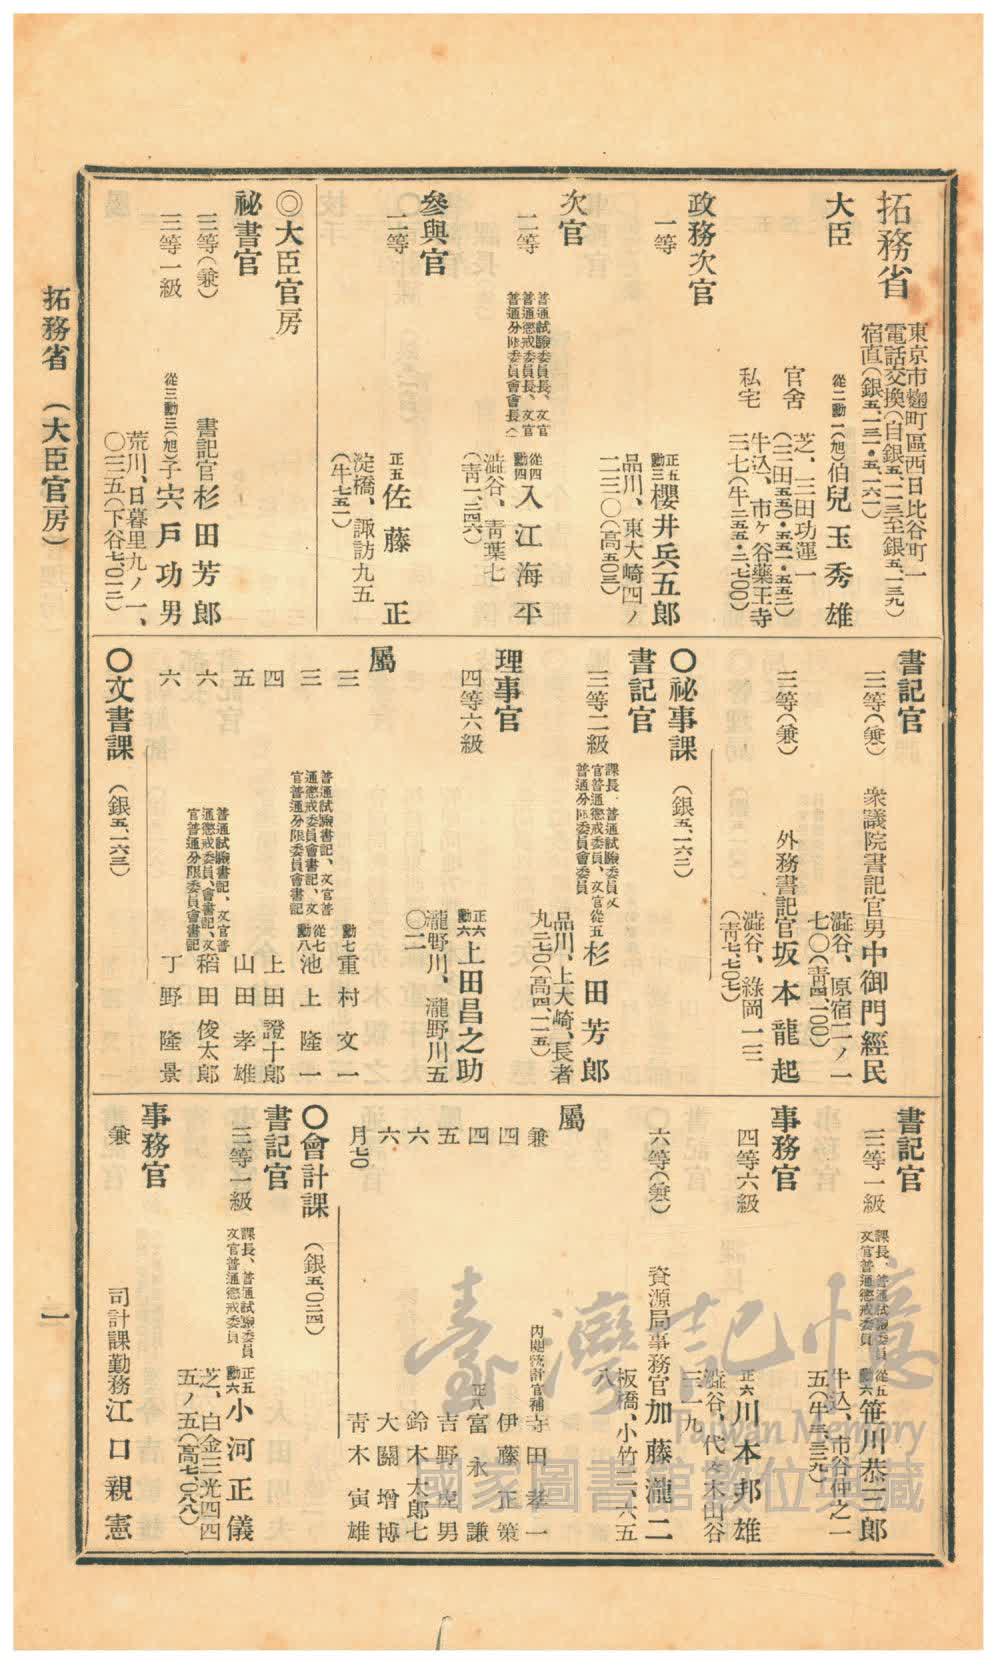 拓務省
東京市麴町區西日比谷町一
電話交換(自銀五、一一三至銀五、一三九)
宿直(銀五、一三一・五、一六一)
大臣
從二勳一(旭)伯兒玉秀雄
官舍 芝、三田功運一
(三田五五〇・五五一・五五二)
私宅 牛込、市ヶ谷藥王寺
三七(牛三五五・二、七〇〇)
政務次官
一等
正五勳三櫻井兵五郎
品川、東大崎四ノ
二三〇(高五〇三)
次官
二等
普通試驗委員長、文官
普通懲戒委員長、文官
普通分限委員會會長
從四勳四入江海平
澁谷、青葉七
(青一、二四六)
參與官
二等
正五佐藤正
淀橋、諏訪九五
(牛七五一)
◎大臣官房
祕書官
三等(兼) 書記官杉田芳郎
三等一級 從三勳三(旭)子宍戶功男
荒川、日暮里九ノ一、
〇三五(下谷七、〇一三)
書記官
三等(兼) 衆議院書記官男中御門經民
澁谷、原宿二ノ一
七〇(青四、一〇〇)
三等(兼) 外務書記官坂本龍起
澁谷、綠岡一三
(青七、七〇七)
〇祕事課(銀五、一六二)
書記官
三等二級
課長、普通試驗委員、文
官普通懲戒委員、文官
普通分限委員會委員
從五杉田芳郎
品川、上大崎、長者
丸二七〇(高四、一二五)
理事官
四等六級 正六勳六上田昌之助
瀧野川、瀧野川五
〇二
屬
三 勳七重村文一
三
普通試驗書記、文官普
通懲戒委員會書記、文
官普通分限委員會書記
從七勳八池上隆一
四 上田證十郎
五 山田孝雄
六
普通試驗書記、文官普
通懲戒委員會書記、文
官普通分限委員會書記
稻田俊太郎
六 丁野隆景
〇文書課(銀五、一六三)
書記官
三等一級
課長、普通試驗委員
文官普通懲戒委員
從五勳六笹川恭三郎
牛込、市谷仲之一
五(牛三、三三九)
事務官
四等六級 正六川本邦雄
澁谷、代々木山谷
三一九
六等(兼) 資源局事務官加藤瀧二
板橋、小竹二、六五
八
屬
兼 內閣統計官補寺田孝一
四 伊藤正策
四 正八富永謙
五 吉野虎男
六 鈴木太郎七
六 大關增博
月七〇 青木寅雄
〇會計課(銀五、〇二四)
書記官
三等一級
課長、普通試驗委員
文官普通懲戒委員
正五勳六小河正儀
芝、白金三光四四
五ノ五(高七、〇八八)
事務官
兼 司計課勤務江口親憲
拓務省 (大臣官房)
一
臺灣記憶
Taiwan Memory
國家圖書館數位典藏